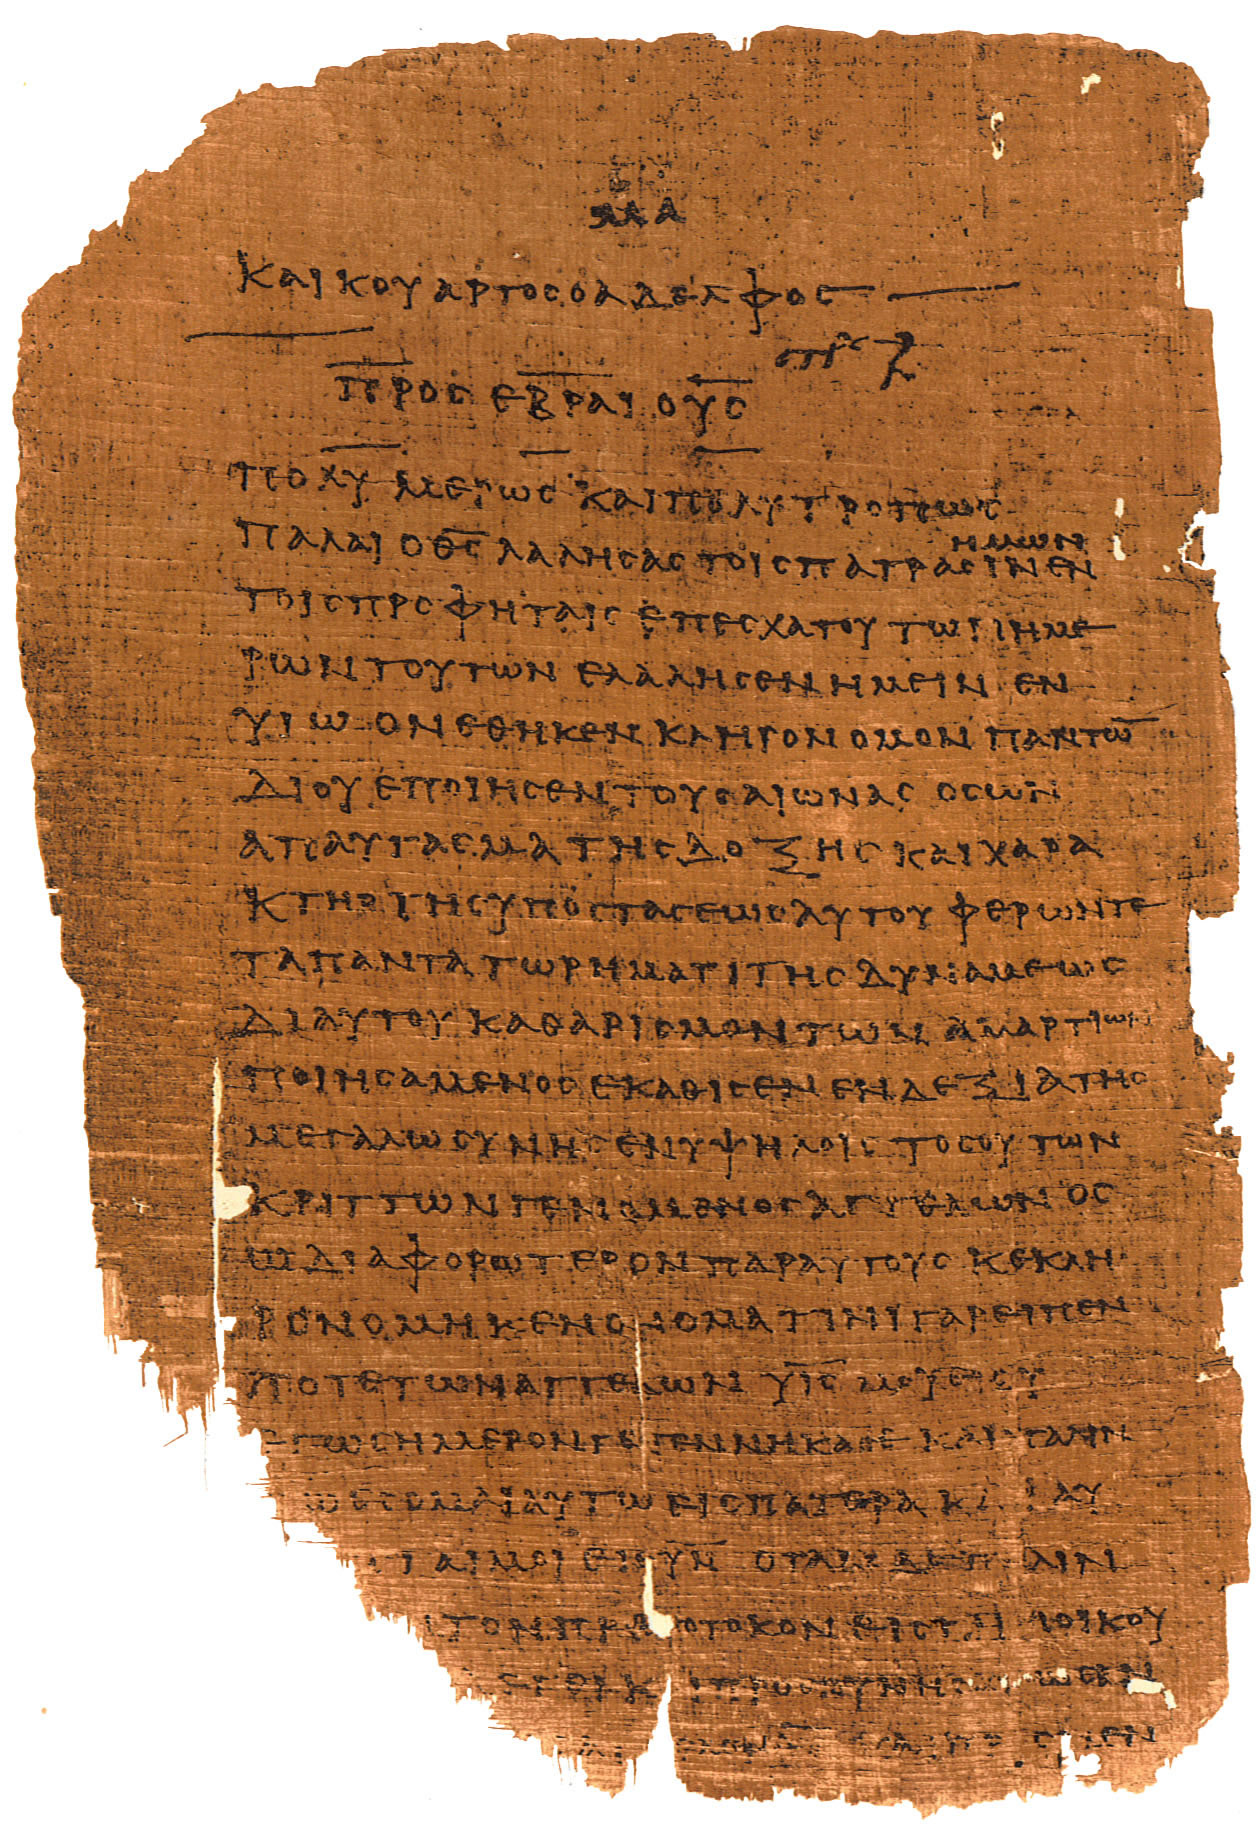 ΚΑΙΚΟΥΑΡΤΟϹΟΑΔΕΛΦΟϹ
ΠΡΟϹ ΕΒΡΑΙΟΥϹ
ΠΟΛΥΜΕΡΩϹ ΚΑΙΠΟΛΥΤΡΟΠΩϹ
ΗΜΩΝ
ΠΑΛΑΙ Ο Θ̅Ϲ̅ ΛΑΛΗϹΑϹ ΤΟΙϹΠΑΤΡΑϹΙΝΕΝ
ΤΟΙϹΠΡΟΦΗΤΑΙϹ ΕΠΕϹΧΑΤΟΥ ΤΩΝΗΜΕ
ΡΩΝΤΟΥΤΩΝ ΕΛΑΛΗϹΕΝΗΜΕΙΝ ΕΝ
ΥΙΩ ΟΝΕΘΗΚΕΝ ΚΛΗΡΟΝΟΜΟΝ ΠΑΝΤΩ̅
ΔΙΟΥ ΕΠΟΙΗϹΕΝΤΟΥϹΑΙΩΝΑϹ ΟϹΩΝ
ΑΠΑΥΓΑϹΜΑ ΤΗϹΔΟΞΗϹ ΚΑΙΧΑΡΑ
ΚΤΗΡ ΤΗϹΥΠΟϹΤΑϹΕΩϹΑΥΤΟΥ ΦΕΡΩΝΤΕ
ΤΑΠΑΝΤΑ ΤΩΡΗΜΑΤΙΤΗϹ ΔΥΝΑΜΕΩϹ
ΔΙΑΥΤΟΥ ΚΑΘΑΡΙϹΜΟΝΤΩΝ ΑΜΑΡΤΙΩΝ
ΠΟΙΗϹΑΜΕΝΟϹ ΕΚΑΘΙϹΕΝ ΕΝΔΕΞΙΑΤΗϹ
ΜΕΓΑΛΩϹΥΝΗϹ ΕΝΥΨΗΛΟΙϹ ΤΟϹΟΥΤΩΝ
ΚΡΙΤΤΩΝΓΕΝΟΜΕΝΟϹ ΑΓΓΕΛΩΝ ΟϹ
Ω ΔΙΑΦΟΡΩΤΕΡΟΝΠΑΡΑΥΤΟΥϹ ΚΕΚΛΗ
ΡΟΝΟΜΗΚΕΝΟΝΟΜΑ ΤΙΝΙΓΑΡΕΙΠΕΝ
ΠΟΤΕΤΩΝΑΓΓΕΛΩΝ Υ̅Ι̅Ϲ̅ ΜΟΥΕΙϹΥ
ΕΓΩϹΗΜΕΡΟΝΓΕΓΕΝΝΗΚΑϹΕ ΚΑΙΠΑΛΙΝ
ΩΕϹΟΜΑΙΑΥΤΩ ΕΙϹΠΑΤΕΡΑ ΚΑΙΑΥ
ΤΑΙΜΟΙ ΕΙϹΥ̅Ν̅ ΟΤΑΝ ΔΕΠΑΛΙΝ
ΤΟΝΠΡΩΤΟΤΟΚΟΝ ΕΙϹΤΗΝΟΙΚΟΥ